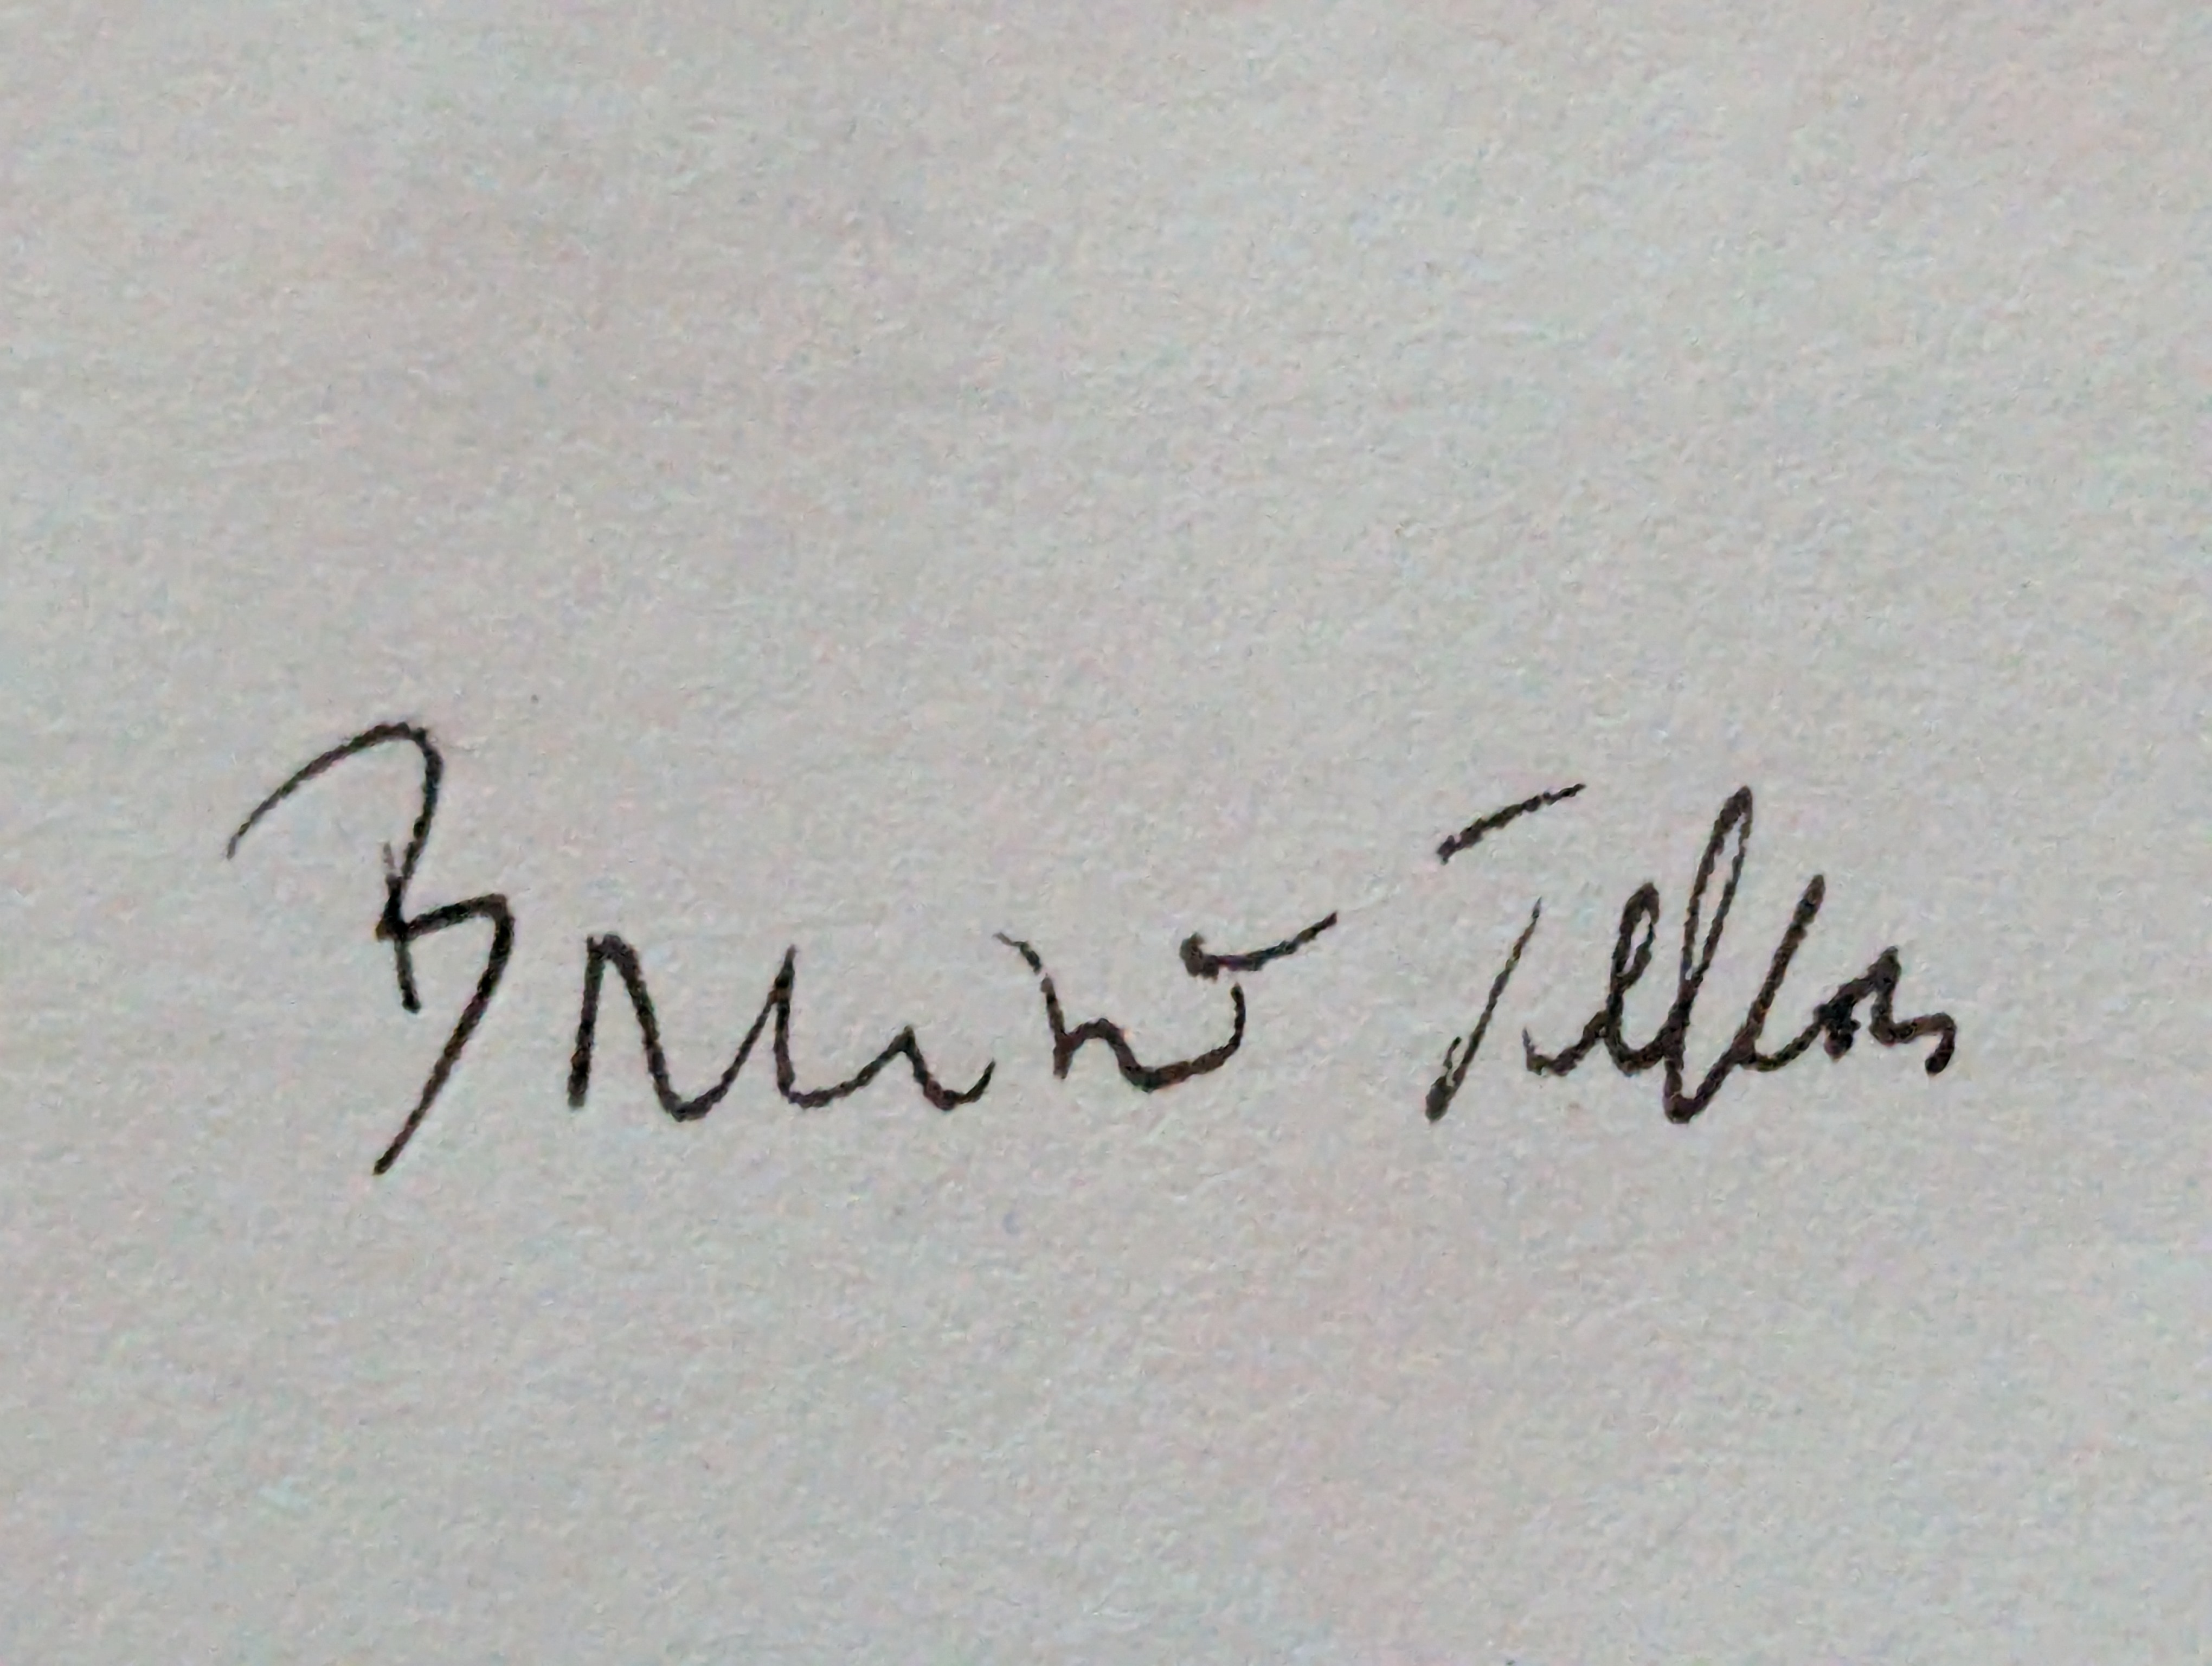 Bruno Tellas